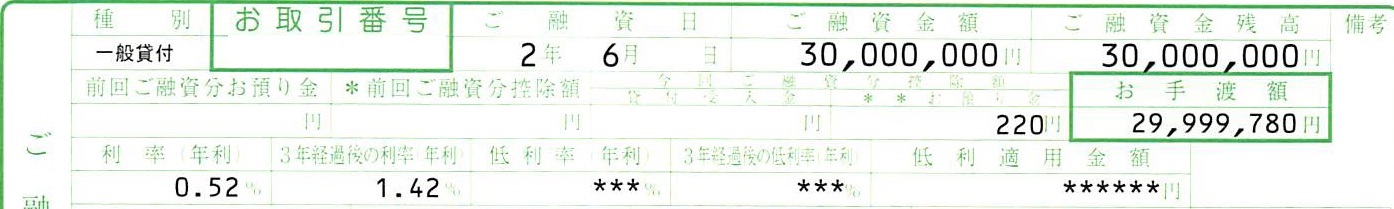 種 別 お取引番号 ご 融 資 日 ご 融 資 金 額 ご 融 資 金 残 高 備考
一般貸付 2年 6月 日 30,000,000円 30,000,000円
前回ご融資分お預り金 *前回ご融資分控除額 今 回 ご 融 資 分 控 除 額 お 手 渡 額
貸 付 受 入 金 * * お 預 り 金
円 円 円 220円 29,999,780円
ご
利 率(年利) 3年経過後の利率(年利) 低 利 率 (年利) 3年経過後の低利率(年利) 低 利 適 用 金 額
0.52% 1.42% ***% ***% ******円
融